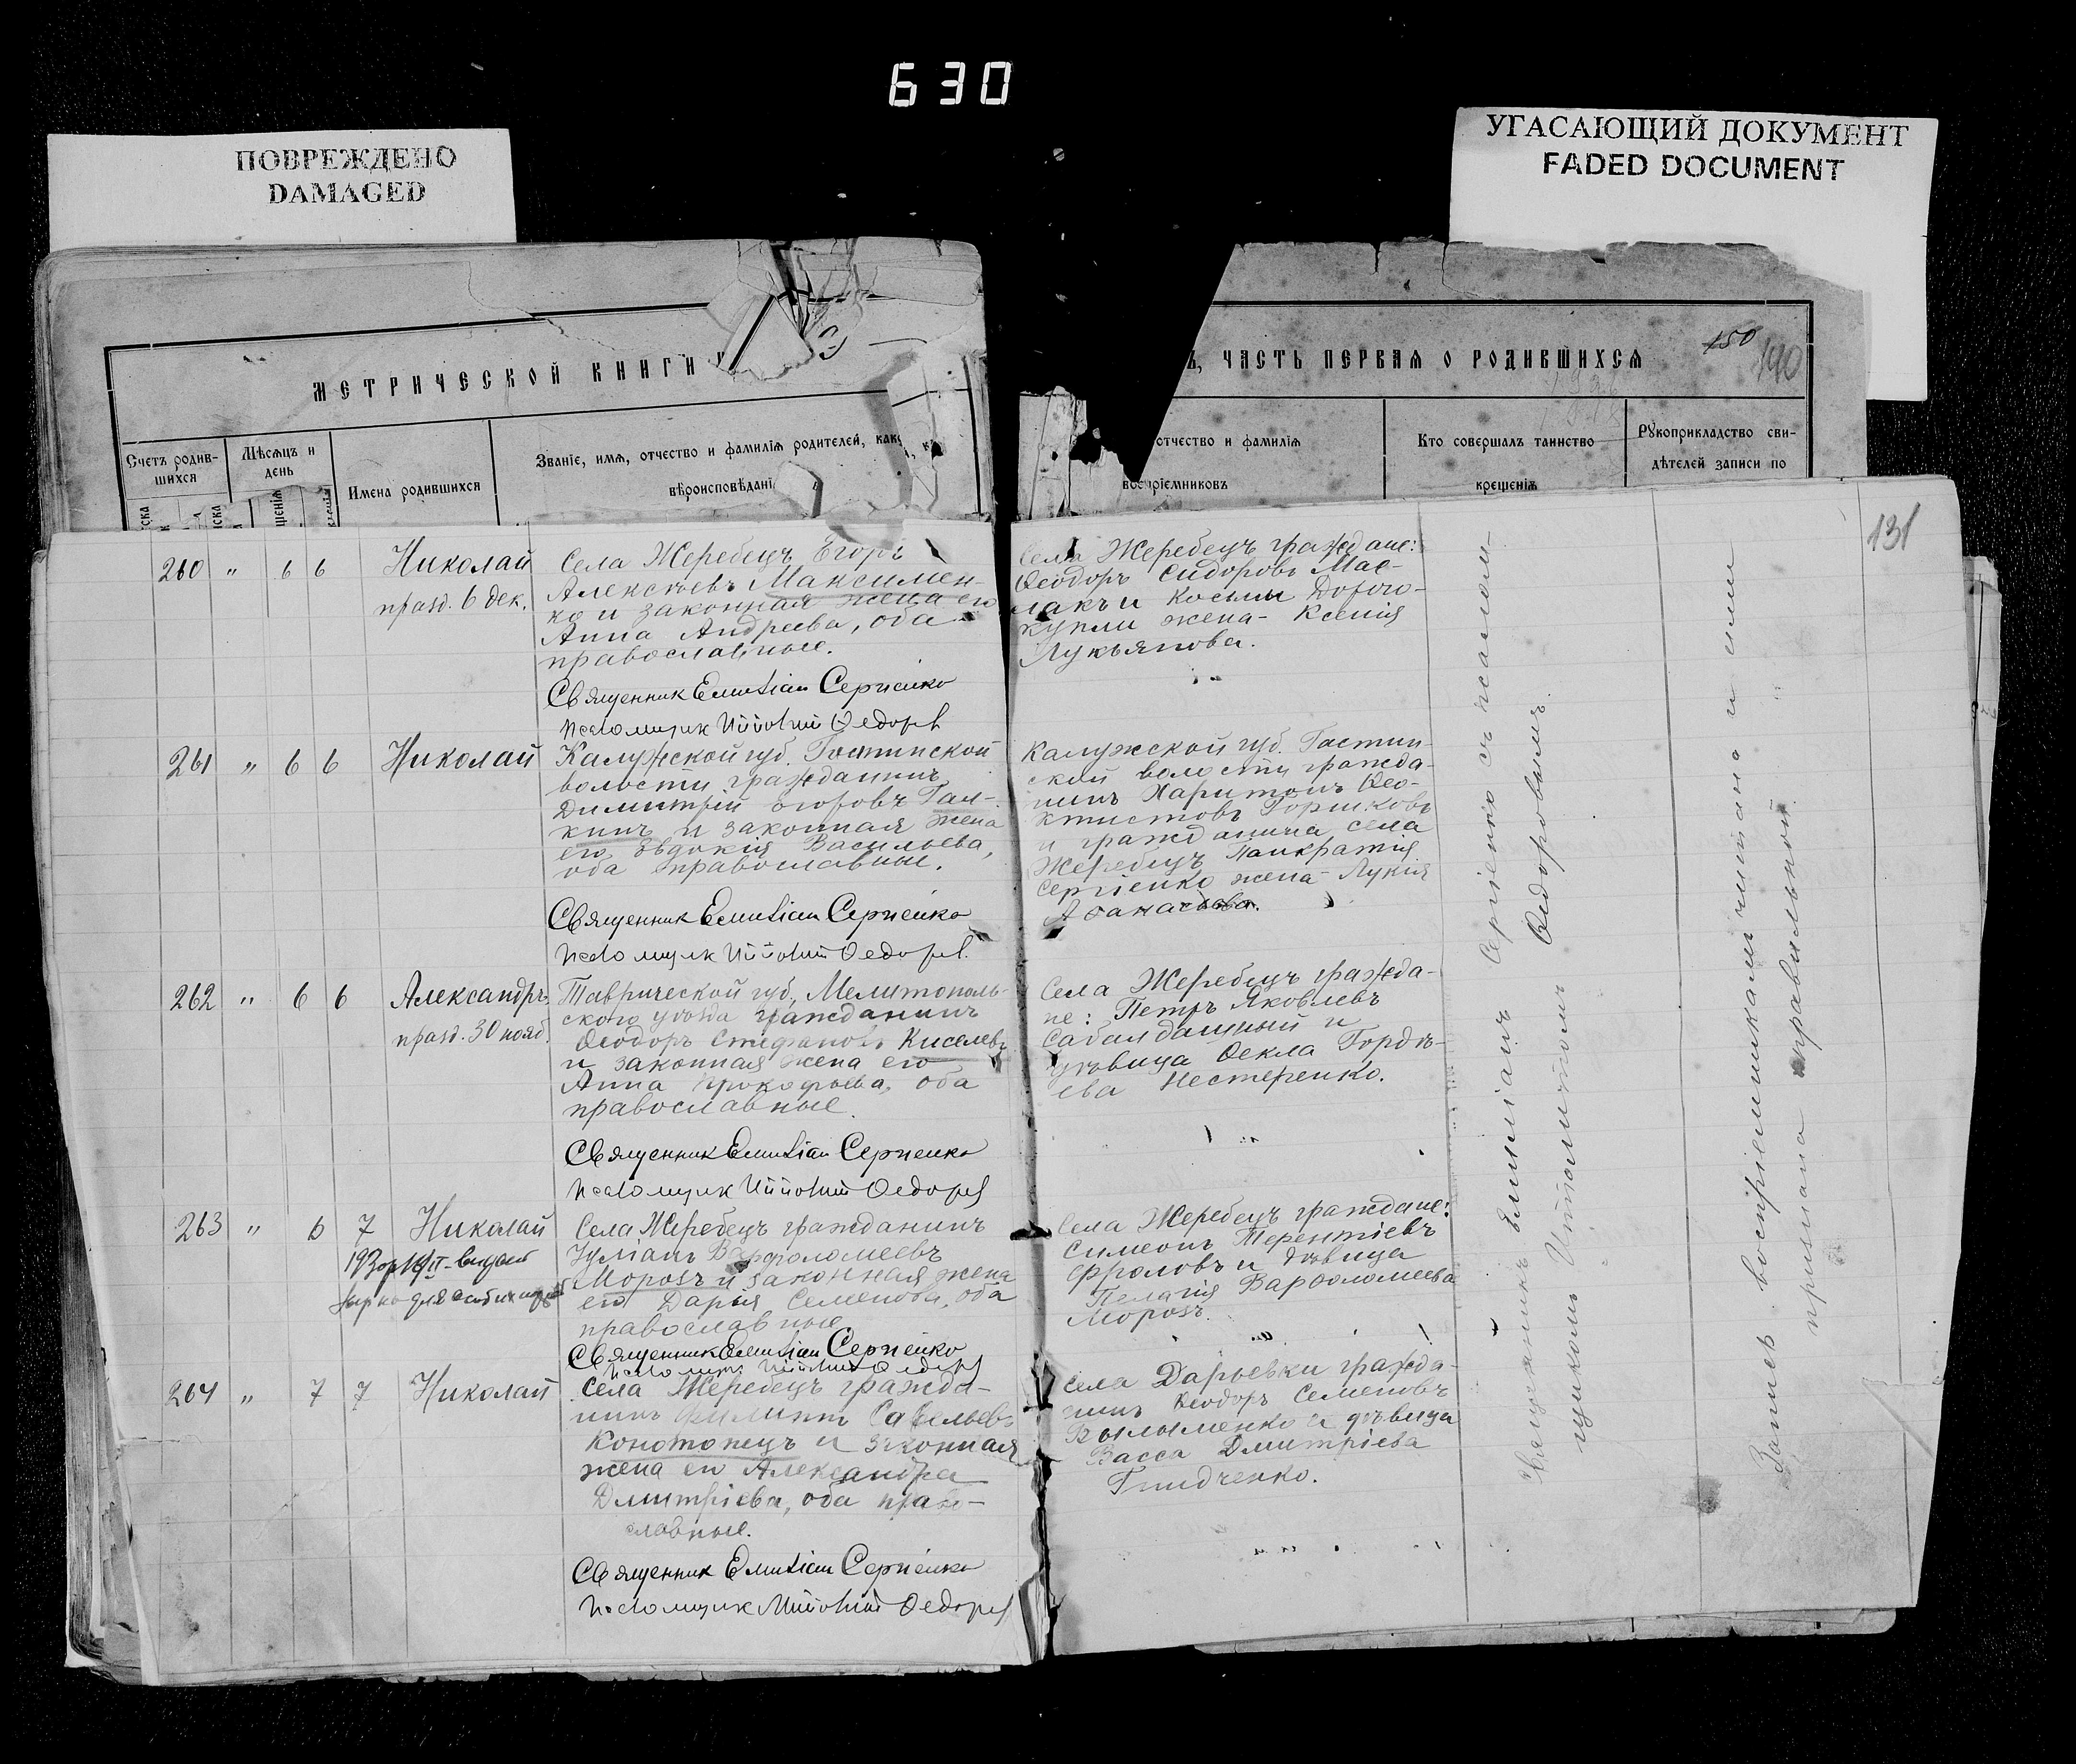 630
ПОВРЕЖДЕНО
DAMAGED
УГАСАЮЩИЙ ДОКУМЕНТ
FADED DOCUMENT
МЕТРИЧЕСКОЙ КНИГИ
ЧАСТЬ ПЕРВАЯ О РОДИВШИХСЯ
150
190
Счетъ родив-
шихся
Мѣсяцъ и
день
Имена родившихся
Званіе, имя, отчество и фамилія родителей, как
вѣроисповѣдані
отчество и фамилія
воспріемниковъ
Кто совершалъ таинство
крещенія
Рукоприкладство сви-
дѣтелей записи по
131
260 " 6 6 Николай
празд. 6 дек.
Села Жеребецъ Егоръ
Алексѣевъ Максимен-
ко и законная жена его
Анна Андреева, оба
православные.
Священник Емилiан Сергиенко
Псаломщик Федоров
Села Жеребецъ граждане:
Ѳеодоръ Сидоровъ Мас-
лакъ и Косьмы Дорого-
купли жена - Ксенія
Лукьянова.
261 " 6 6 Николай
Калужской губ. Гостинской
волости гражданинъ
Димитрій Егоровъ Гал-
кинъ и законная жена
его Эвдокія Васильева,
оба православные.
Священник Емилiан Сергиенко
Псаломщик Федоров.
Калужской губ. Гастин-
ской волости гражда-
нинъ Харитонъ Ѳео-
ктистовъ Горшковъ
и гражданина села
Жеребецъ Панкратія
Сергіенко жена - Лукія
Аѳанасьева.
262 " 6 6 Александръ
празд. 30 нояб.
Таврической губ., Мелитополь-
ского уѣзда гражданинъ
Ѳеодоръ Стефановъ Киселевъ
и законная жена его
Анна Прокофьева, оба
православные.
Священник Емилiан Сергиенко
Псаломщик Федоров
Села Жеребецъ гражда-
не: Петръ Яковлевъ
Сабалдашный и
дѣвица Ѳекла Гордѣ-
ева Нестеренко.
263 " 6 7 Николай
Села Жеребецъ гражданинъ
Іуліанъ Варфоломеевъ
Морозъ и законная жена
его Дарья Семенова, оба
православные
Священник Емилiан Сергиенко
Псаломщик Федоров
Села Жеребецъ граждане:
Симеонъ Терентіевъ
Фроловъ и дѣвица
Пелагія Варѳоломеева
Морозъ.
264 " 7 7 Николай
Села Жеребецъ гражда-
нинъ Филиппъ Савельевъ
Конотопецъ и законная
жена его Александра
Дмитріева, оба право-
славные.
Священник Емилiан Сергиенко
Псаломщик Федоров
Села Дарьевки гражда-
нинъ Ѳеодоръ Семеновъ
и дѣвица
Васса Дмитріева
Священникъ Емиліанъ Сергіенко съ псалом-
щикомъ Ипполитомъ Ѳедоровымъ.
Запись воспріемниками читана и ими
признана правильной.